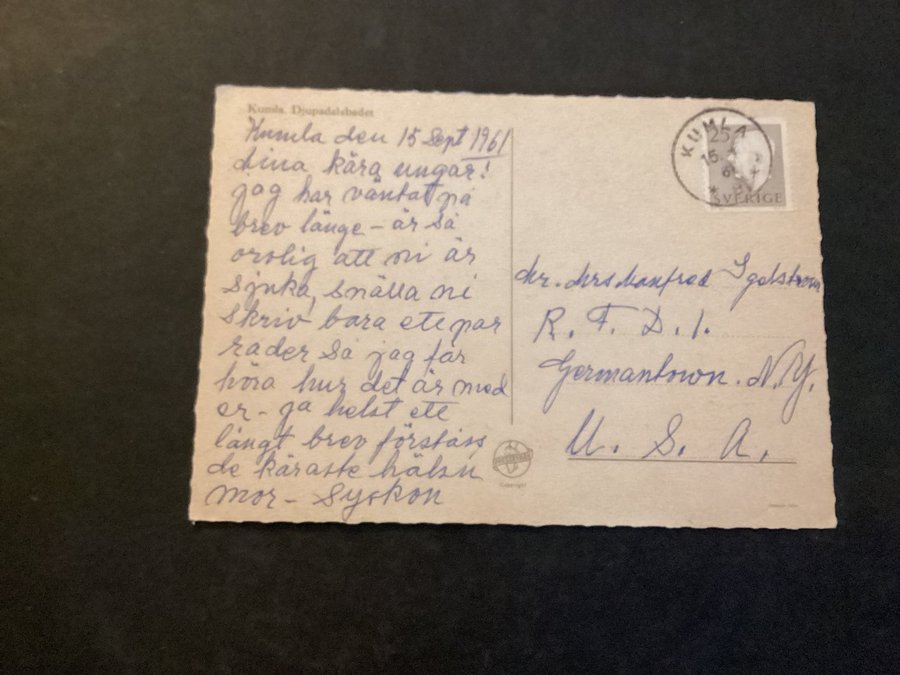 Kumla. Djupadalsbadet
Kumla den 15 Sept 1961
dina kära ungar!
jag har väntat på
brev länge – är så
orolig att ni är
sjuka, snälla ni
skriv bara ett par
rader så jag får
höra hur det är med
er – ja helst ett
långt brev förståss
de käraste hälsn
mor – Syskon
KUMLA
15
25
SVERIGE
Mr. Mrs Manfred Igelstrom
R. F. D. 1.
Germantown. N.Y.
U. S. A.
Copyright